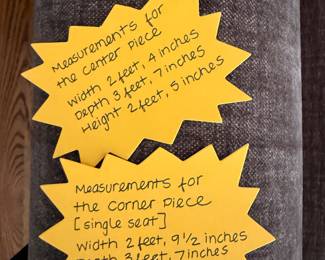 Measurements for
the center Piece
width 2 feet, 4 inches
Depth 3 feet, 7 inches
Height 2 feet, 5 inches
Measurements for
the corner Piece
[single seat]
Width 2 feet, 9 1/2 inches
Depth 3 feet, 7 inches